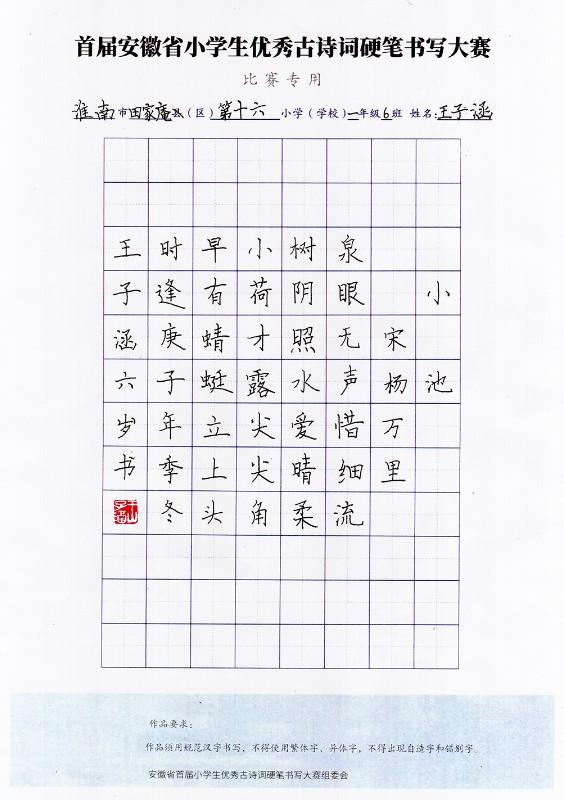 首届安徽省小学生优秀古诗词硬笔书写大赛
比赛专用
淮南市田家庵县（区）第十六小学（学校）一年级6班 姓名:王子涵
小池
宋杨万里
泉眼无声惜细流
树阴照水爱晴柔
小荷才露尖尖角
早有蜻蜓立上头
时逢庚子年季冬
王子涵六岁书
作品要求：
作品须用规范汉字书写，不得使用繁体字、异体字，不得出现自造字和错别字。
安徽省首届小学生优秀古诗词硬笔书写大赛组委会